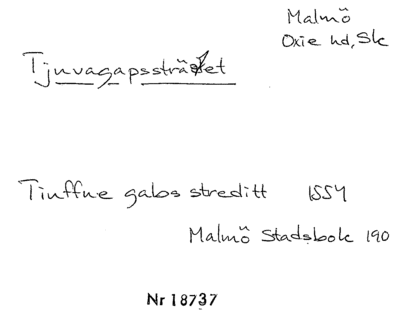 Malmö
Oxie hd, Sk
Tjuvagapssträdet
Tiuffue gabs streditt 1554
Malmö Stadsbok 190
Nr 18737